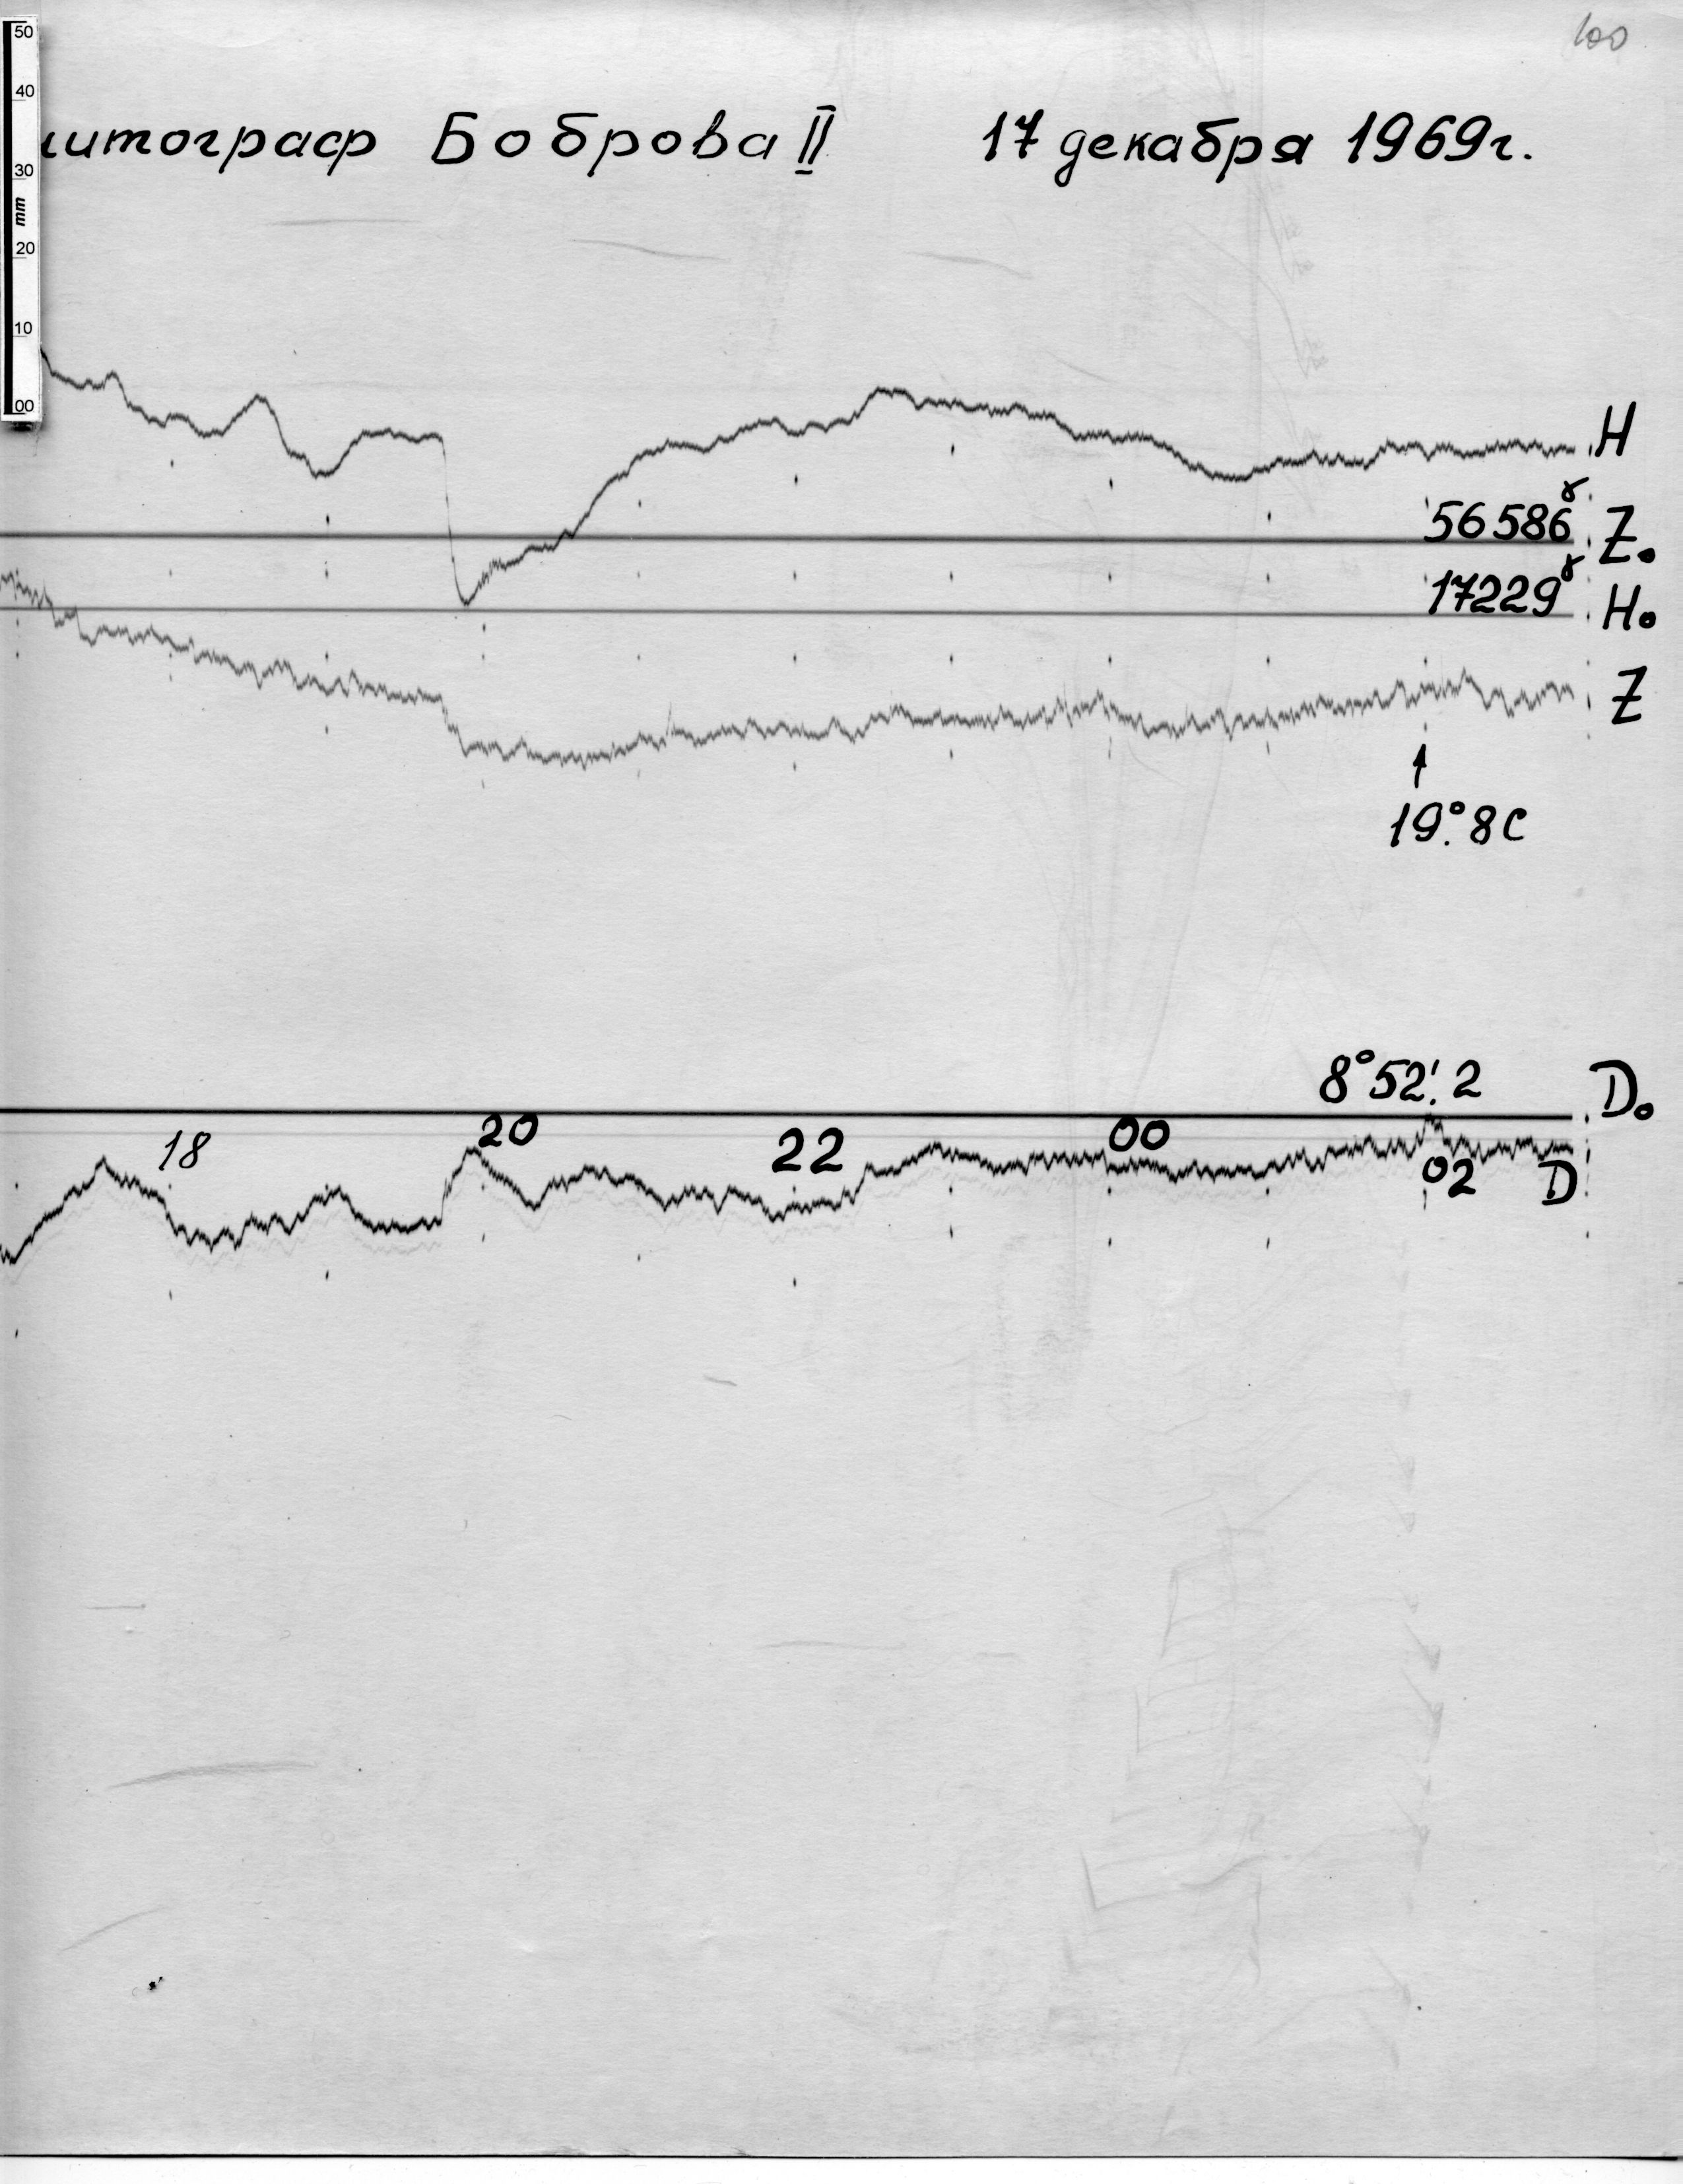 100
50
40
30
mm
20
10
00
Боброва II 17 декабря 1969г.
H
56586γ Z₀
17229γ H₀
Z
19°.8C
8°52'.2 D₀
18 20 22 00 02 D